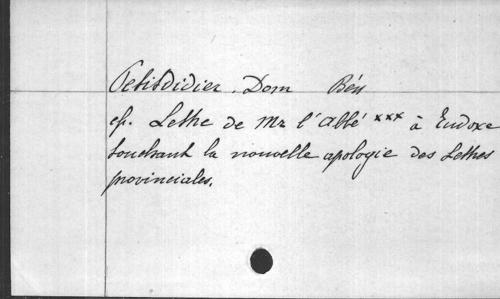 Petitdidier, Dom Bén
cf. Lettre de Mr l'abbé xxx à Eudoxe
touchant la nouvelle apologie des Lettres
provinciales.